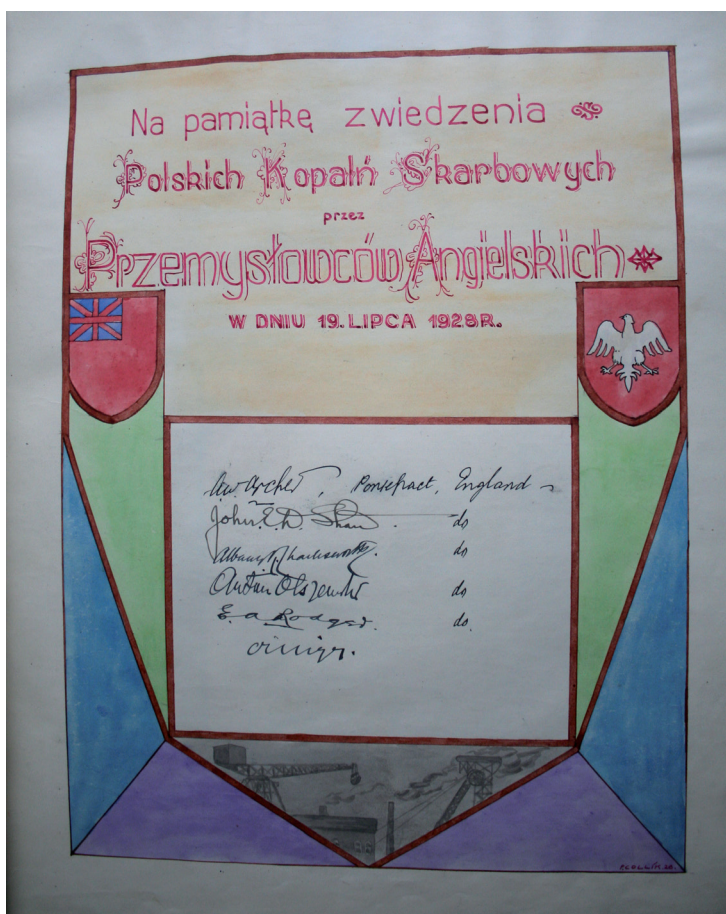 Na pamiątkę zwiedzenia
Polskich Kopalń Skarbowych
przez
Przemysłowców Angielskich
W DNIU 19. LIPCA 1928R.
A.W. Archer, Pontefract, England
John E.D. Shaw. do
do
Antoni Olszewski do
E. A. Rodger. do.